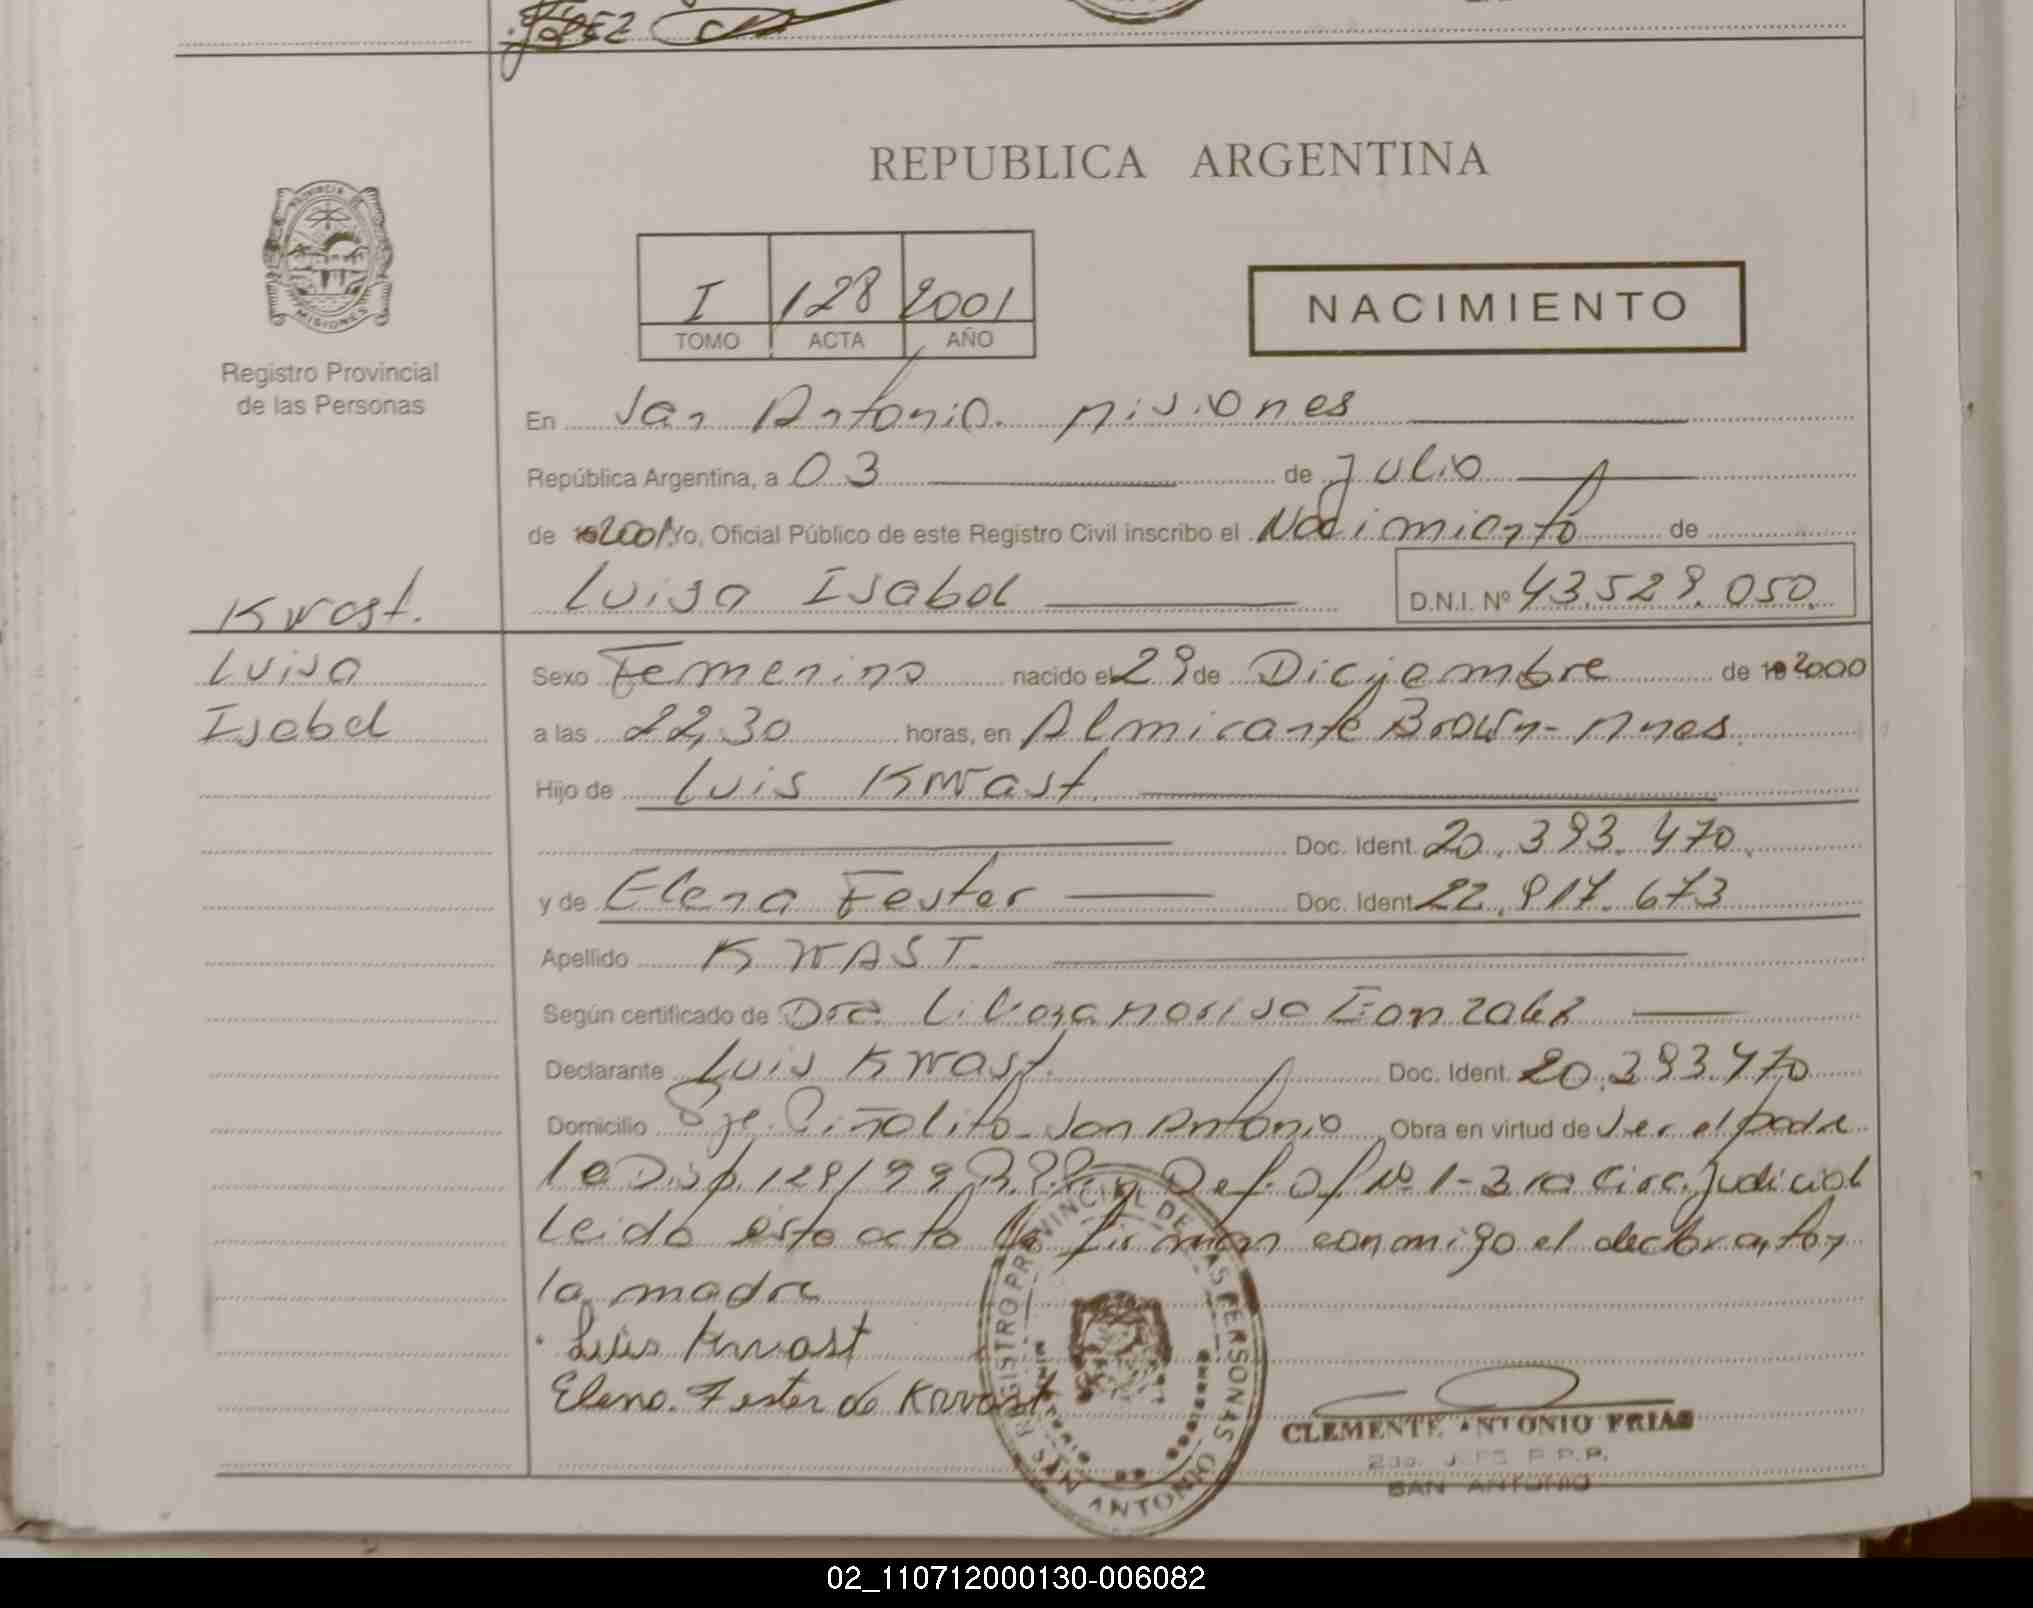 REPUBLICA ARGENTINA
PROVINCIA DE
MISIONES
Registro Provincial
de las Personas
I 128 2001
TOMO ACTA AÑO
NACIMIENTO
En San Antonio. Misiones
República Argentina, a 03 de Julio
de 2001 Yo, Oficial Público de este Registro Civil inscribo el Nacimiento de
Kwast.
Luisa Isabel D.N.I. Nº 43.529.050
Luisa
Isabel
Sexo Femenino nacido el 29 de Diciembre de 19 2000
a las 22,30 horas, en Almirante Brown - Mnes.
Hijo de Luis Kwast
Doc. Ident. 20.393.470.
y de Elena Fester Doc. Ident. 22.917.673
Apellido KWAST.
Según certificado de Dra. Liliana Marisa Gonzalez
Declarante Luis Kwast. Doc. Ident. 20.393.470
Domicilio Pje. Piñalito - San Antonio Obra en virtud de Ser el padre
la Disp. 129/99 R.P.P. y Def. Of. Nº 1-3ra Circ. Judicial
Leido esta acta la firman conmigo el declarante y
la madre
Luis Kwast
Elena Fester de Kwast
REGISTRO PROVINCIAL DE LAS PERSONAS
SAN ANTONIO
CLEMENTE ANTONIO FRIAS
SAN ANTONIO
02_110712000130-006082